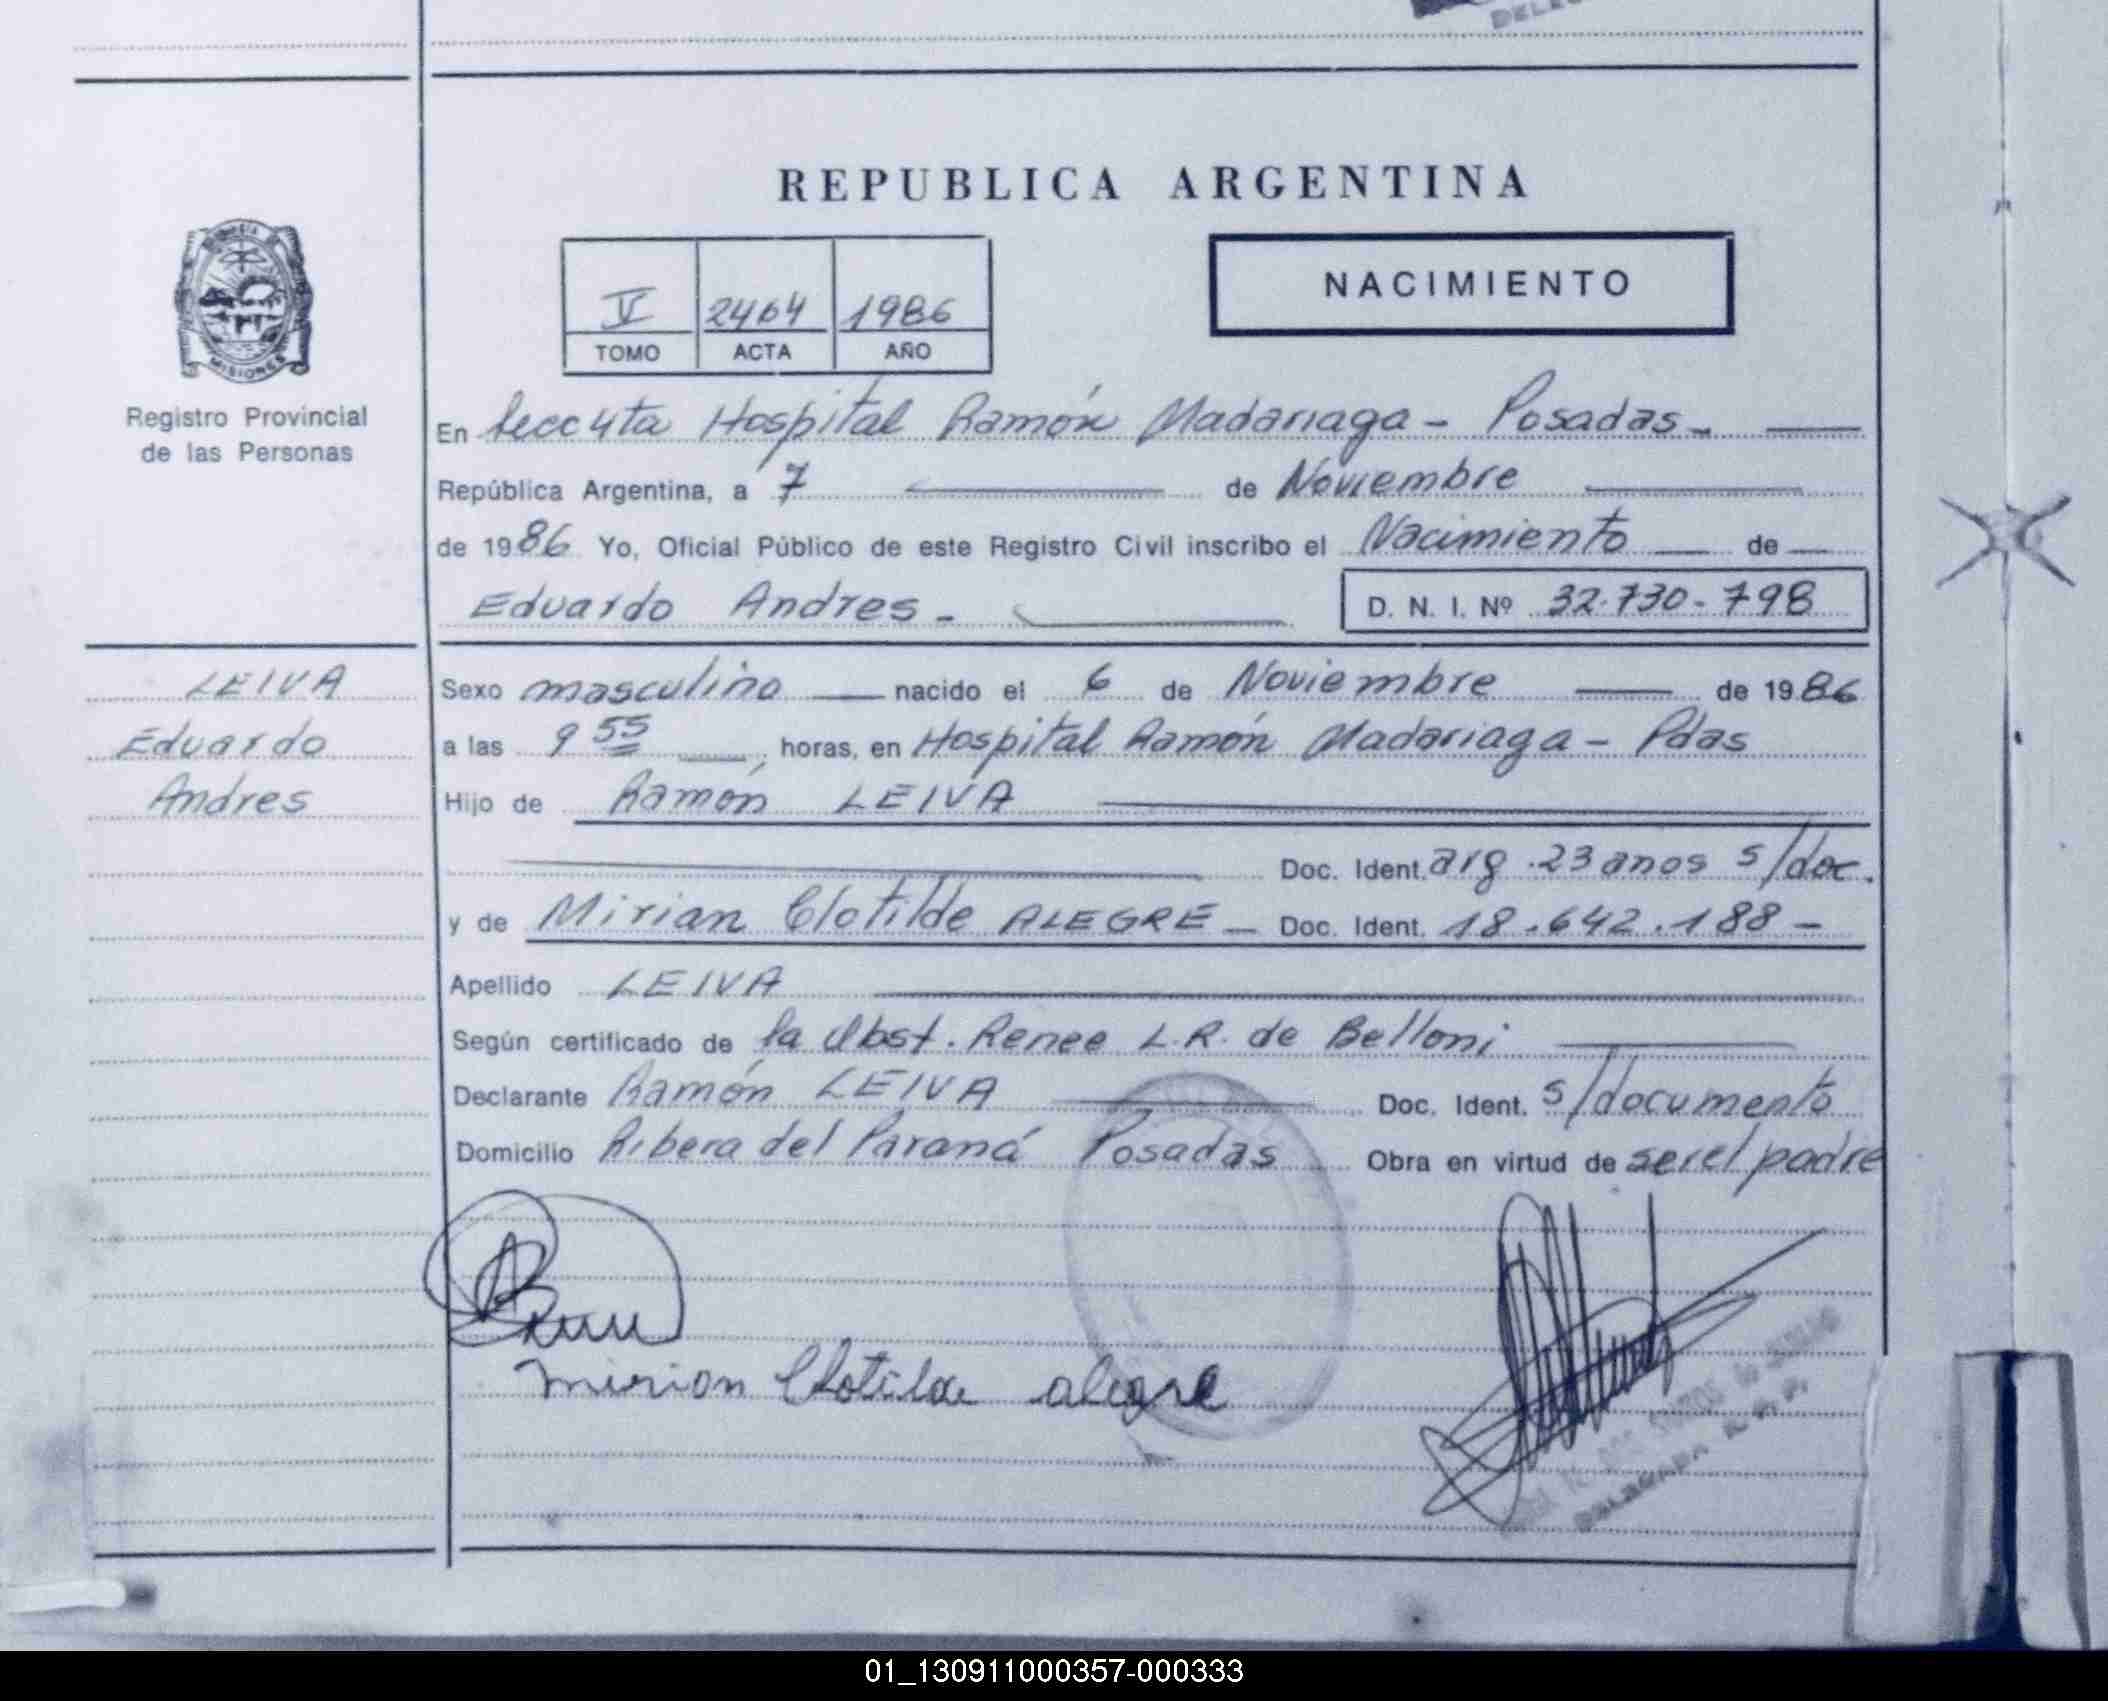 REPUBLICA ARGENTINA
NACIMIENTO
V 2464 1986
TOMO ACTA AÑO
MISIONES
Registro Provincial
de las Personas
En Secc 4ta Hospital Ramón Madariaga - Posadas -
República Argentina, a 7 de Noviembre
de 1986 Yo, Oficial Público de este Registro Civil inscribo el Nacimiento de
Eduardo Andres - D. N. I. Nº 32.730-798
LEIVA
Eduardo
Andres
Sexo masculino nacido el 6 de Noviembre de 1986
a las 9 55 horas, en Hospital Ramón Madariaga - Pdas
Hijo de Ramón LEIVA
Doc. Ident. arg. 23 anos s/doc.
y de Mirian Clotilde ALEGRE - Doc. Ident. 18.642.188 -
Apellido LEIVA
Según certificado de la Obst. Renee L.R. de Belloni
Declarante Ramón LEIVA Doc. Ident. s/documento
Domicilio Ribera del Paraná Posadas Obra en virtud de ser el padre
mirion Clotilde alegre
DELEGADA R. P. P.
01_130911000357-000333